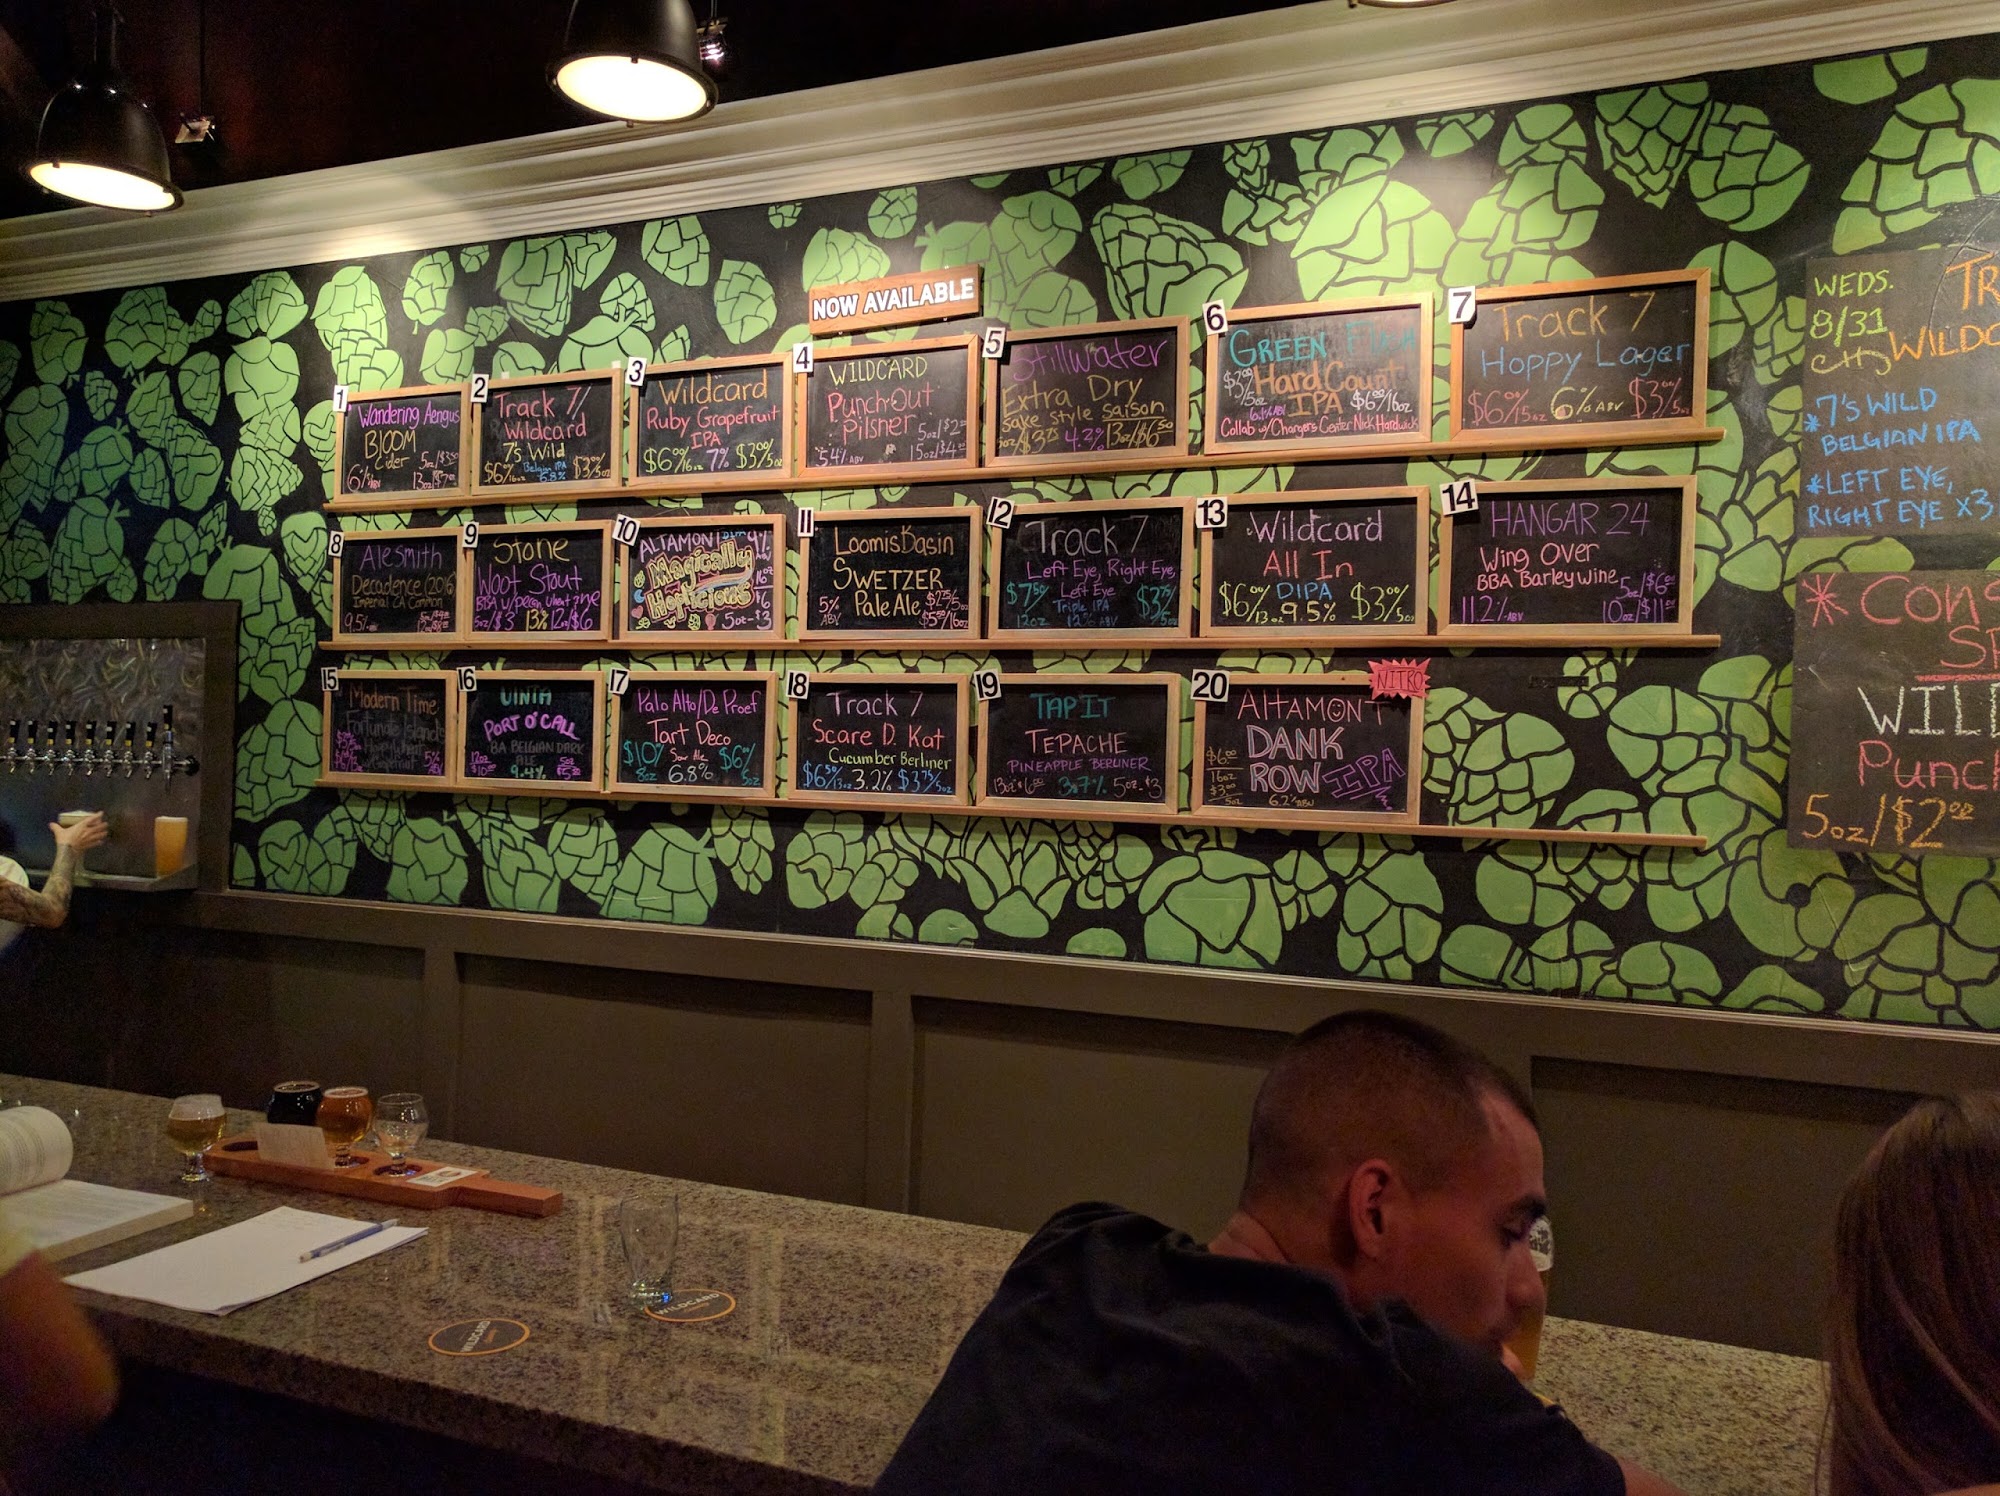 NOW AVAILABLE
1
Wandering Aengus
Bloom
Cider
6% ABV
2
Track 7/
Wildcard
7's Wild
Belgian IPA
$6⁰⁰/16oz 6.8% $3⁰⁰/5oz
3
Wildcard
Ruby Grapefruit
IPA
$6⁰⁰/16oz 7% $3⁰⁰/5oz
4
WILDCARD
Punch-Out
Pilsner
5oz/$2⁰⁰
5.4% ABV 15oz/$4⁰⁰
5
Stillwater
Extra Dry
Sake style Saison
5oz/$3.75 4.2% 13oz/$6⁵⁰
6
GREEN FLASH
Hard Count
IPA
$3⁰⁰/5oz $6⁰⁰/16oz
Collab w/ Chargers Center Nick Hardwick
7
Track 7
Hoppy Lager
6% ABV
8
Alesmith
Decadence (2016)
Imperial CA Common
9.5% ABV
9
Stone
Woot Stout
5oz/$3 13% 12oz/$6
10
ALTAMONT
Magically
Hoplicious
5oz-$3
11
Loomis Basin
SWETZER
Pale Ale
5% ABV
$5⁵⁰/16oz
12
Track 7
Left Eye, Right Eye,
Left Eye
Triple IPA
$7⁵⁰/12oz $3⁷⁵/5oz
13
Wildcard
All In
DIPA
$6⁰⁰/13oz 9.5% $3⁰⁰/5oz
14
HANGAR 24
Wing Over
BBA Barleywine
5oz/$6⁰⁰
11.2% ABV 10oz/$11⁰⁰
15
Modern Times
Fortunate Islands
Hoppy Wheat
5% ABV
16
UINTA
PORT O' CALL
BA BELGIAN DARK
ALE
9.4%
17
Palo Alto/De Proef
Tart Deco
Sour Ale
$10⁰⁰/8oz 6.8% $6⁰⁰/5oz
18
Track 7
Scare D. Kat
Cucumber Berliner
$6⁵⁰/13oz 3.2% $3⁷⁵/5oz
19
TAP IT
TEPACHE
PINEAPPLE BERLINER
3.7% 5oz-$3
20
NITRO
ALTAMONT
DANK
ROW
IPA
$6⁰⁰/16oz
$3⁰⁰/5oz
6.2% ABV
WEDS.
8/31
TR
WILDC
*7'S WILD
BELGIAN IPA
*LEFT EYE,
RIGHT EYE X3
*CONS
SP
WIL
Punc
5oz/$2⁰⁰
WILDCARD
WILDCARD